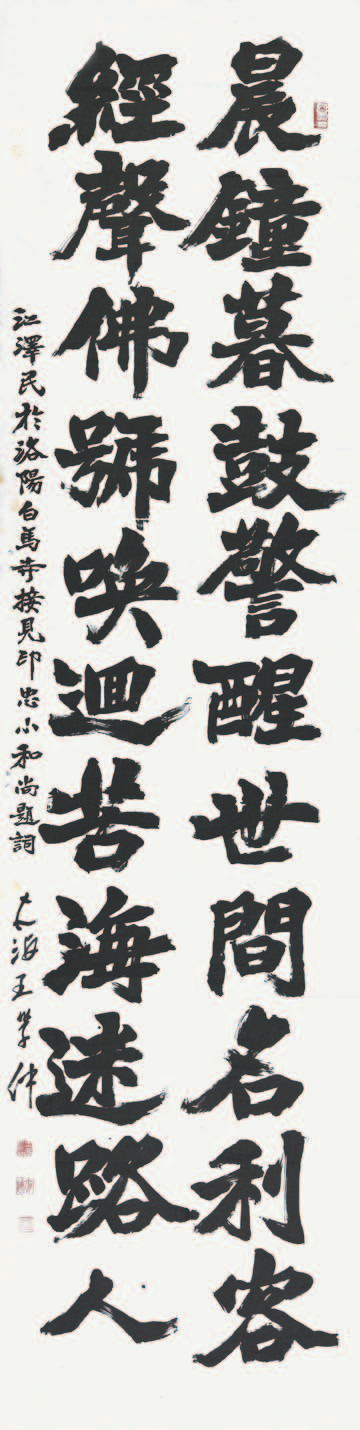 晨鐘暮鼓警醒世間名利客
經聲佛號喚迴苦海迷路人
江澤民於洛陽白馬寺接見印忠小和尚題詞
王學仲